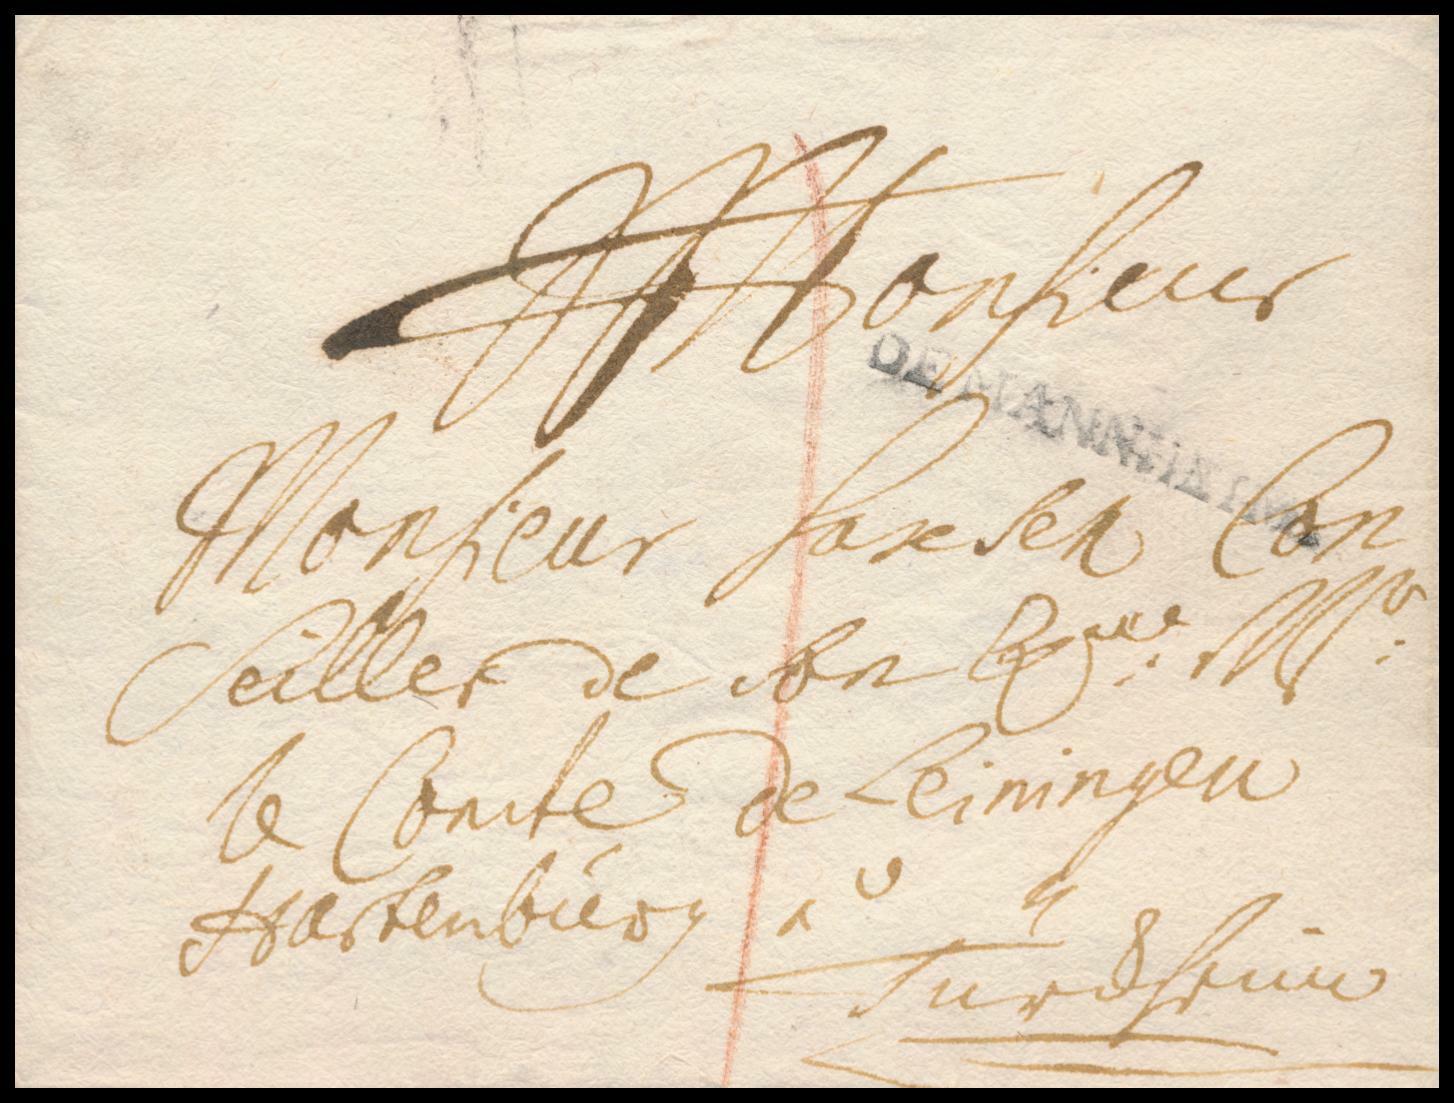 Monsieur
DE MANNHEIM
Monsieur Con
Seiller de son
le Comte de Leiningen
Hartenbürg a
Türckheim